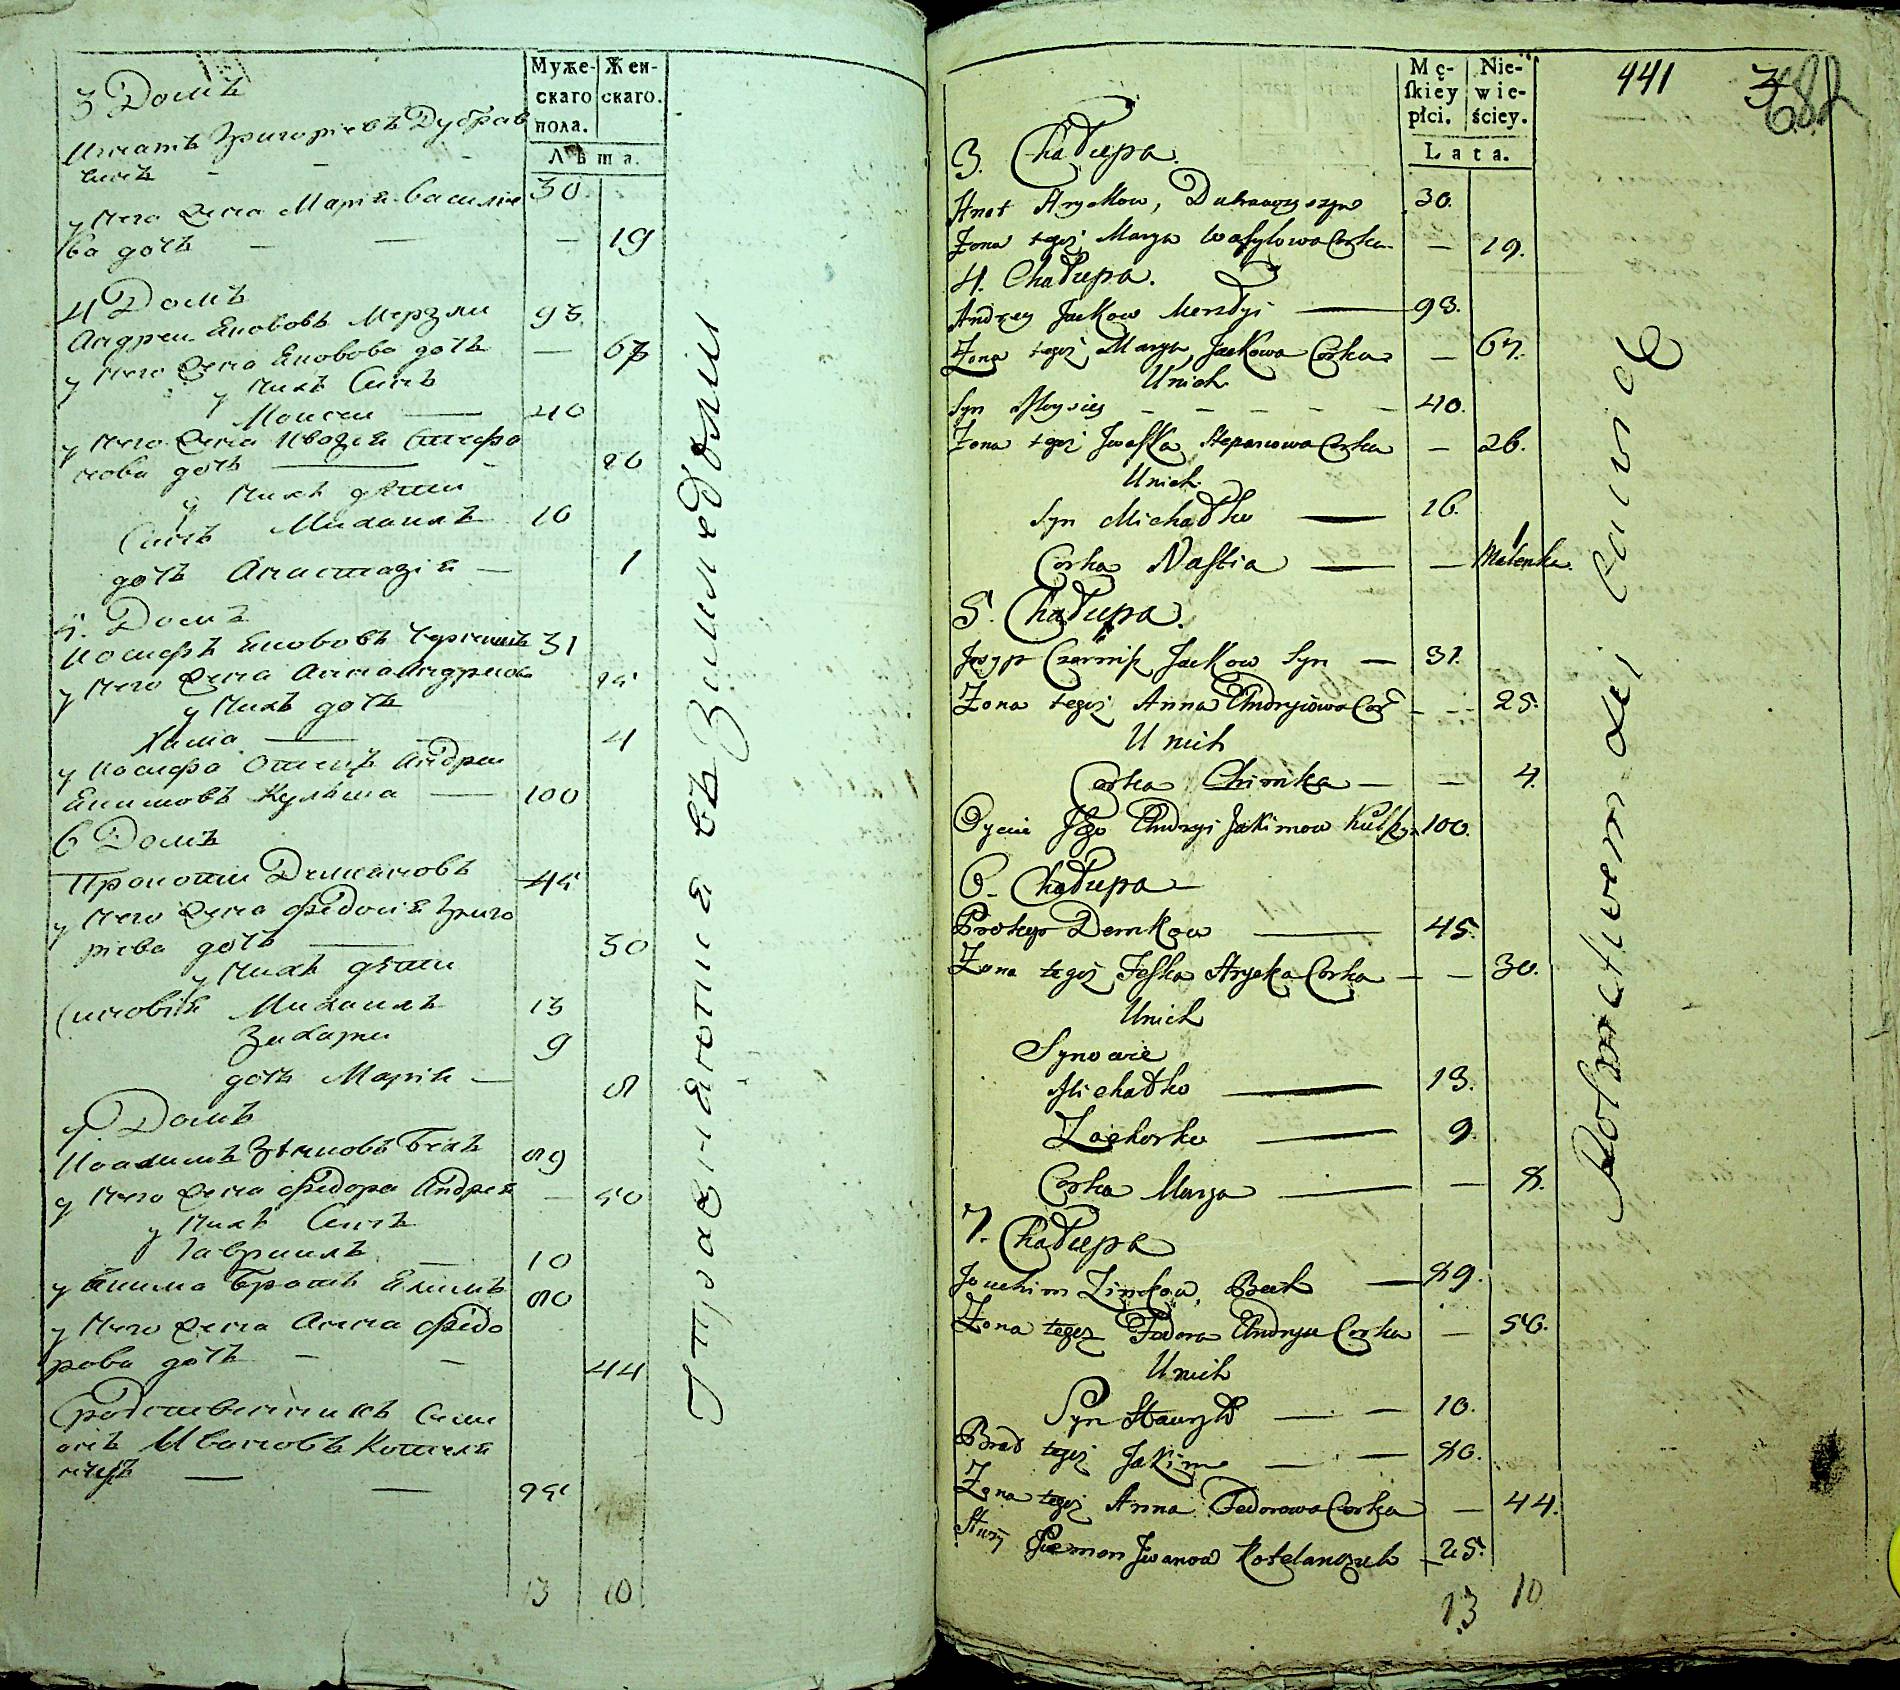 Муже-
скаго
пола.
Жен-
скаго.
Лѣта.
3 Домъ
Игнатъ Григорiевъ Дубрав
у него жена Марiя Василие
30
ва дочь — — — 19
4 Домъ
Андреи Якововъ Мерзли 93
у него жена Яковова дочь — 67
у нихъ Синъ
Моисеи — 40
у него жена Ивага Стефа
нова дочь — 26
у нихъ дѣти
Синъ Михаилъ 16
дочь Анастазiя — 1
5. Домъ
Иосифъ Якововъ 31
у него жена Анна Андреова 25
у нихъ дочь
Хима — 4
у Иосифа Отецъ Андреи
Екимовъ Кулѣша — 100
6 Домъ
Прокопи Демяновъ 45
у него жена Федосiя Григо
риева дочь — 30
у нихъ дѣти
Синовiя Михаилъ 13
Захарки 9
дочь Марiя — 8
7. Домъ
Иоахимъ Зѣнковъ Бекъ 89
у него жена Федора Андрея — 50
у нихъ Синъ
Гавриилъ — 10
у Екима Братъ Екимъ 80
у него жена Анна Федо
рова дочь — — 44
Сродственникъ Сими
онъ Ивановъ Котеля
нчукъ — — 25
13 10
Православнiе въ Зимледоли
441
682
Mę-
ſkiey
płci.
Nie-
wie-
ściey.
Lata.
3. Chałupa.
Hnat Hryckow, 30.
Zona tegoż Marya Wasylowa Corka — 19.
4. Chałupa.
Andrey Jackow Merzlyi — 93.
Zona tegoż Marya Jackowa Corka — 67.
U nich
Syn Moysiey — — — — — 40.
Zona tegoż Jwaſka Stepanowa Corka — 26.
U nich
Syn Michałko — 16.
Corka Naſtia — — Malenka.
5. Chałupa.
Josyp Czernisz Jackow Syn — 31.
Zona tegoż Anna Andryiowa Cor — — 25.
U nich
Corka Chimka — — 4.
Oyciec Jego Andryi Jakimow Kulſza 100.
6. Chałupa —
Prokop Demkow — 45.
Zona tegoż Feſka Hrycka Corka — — 30.
U nich
Synowie
Michałko — 13.
Zacharko — 9.
Corka Marya — — 8.
7. Chałupa
Joachim Zinkow, Bek — 89.
Zona tegoż Fedora Andryia Corka — 50.
U nich
Syn Hawryło — — 10.
Brat tegoż Jakim — — 80.
Zona tegoż Anna Fedorowa Corka — 44.
Semon Jwanow Kotelanczuk — 25.
13 10